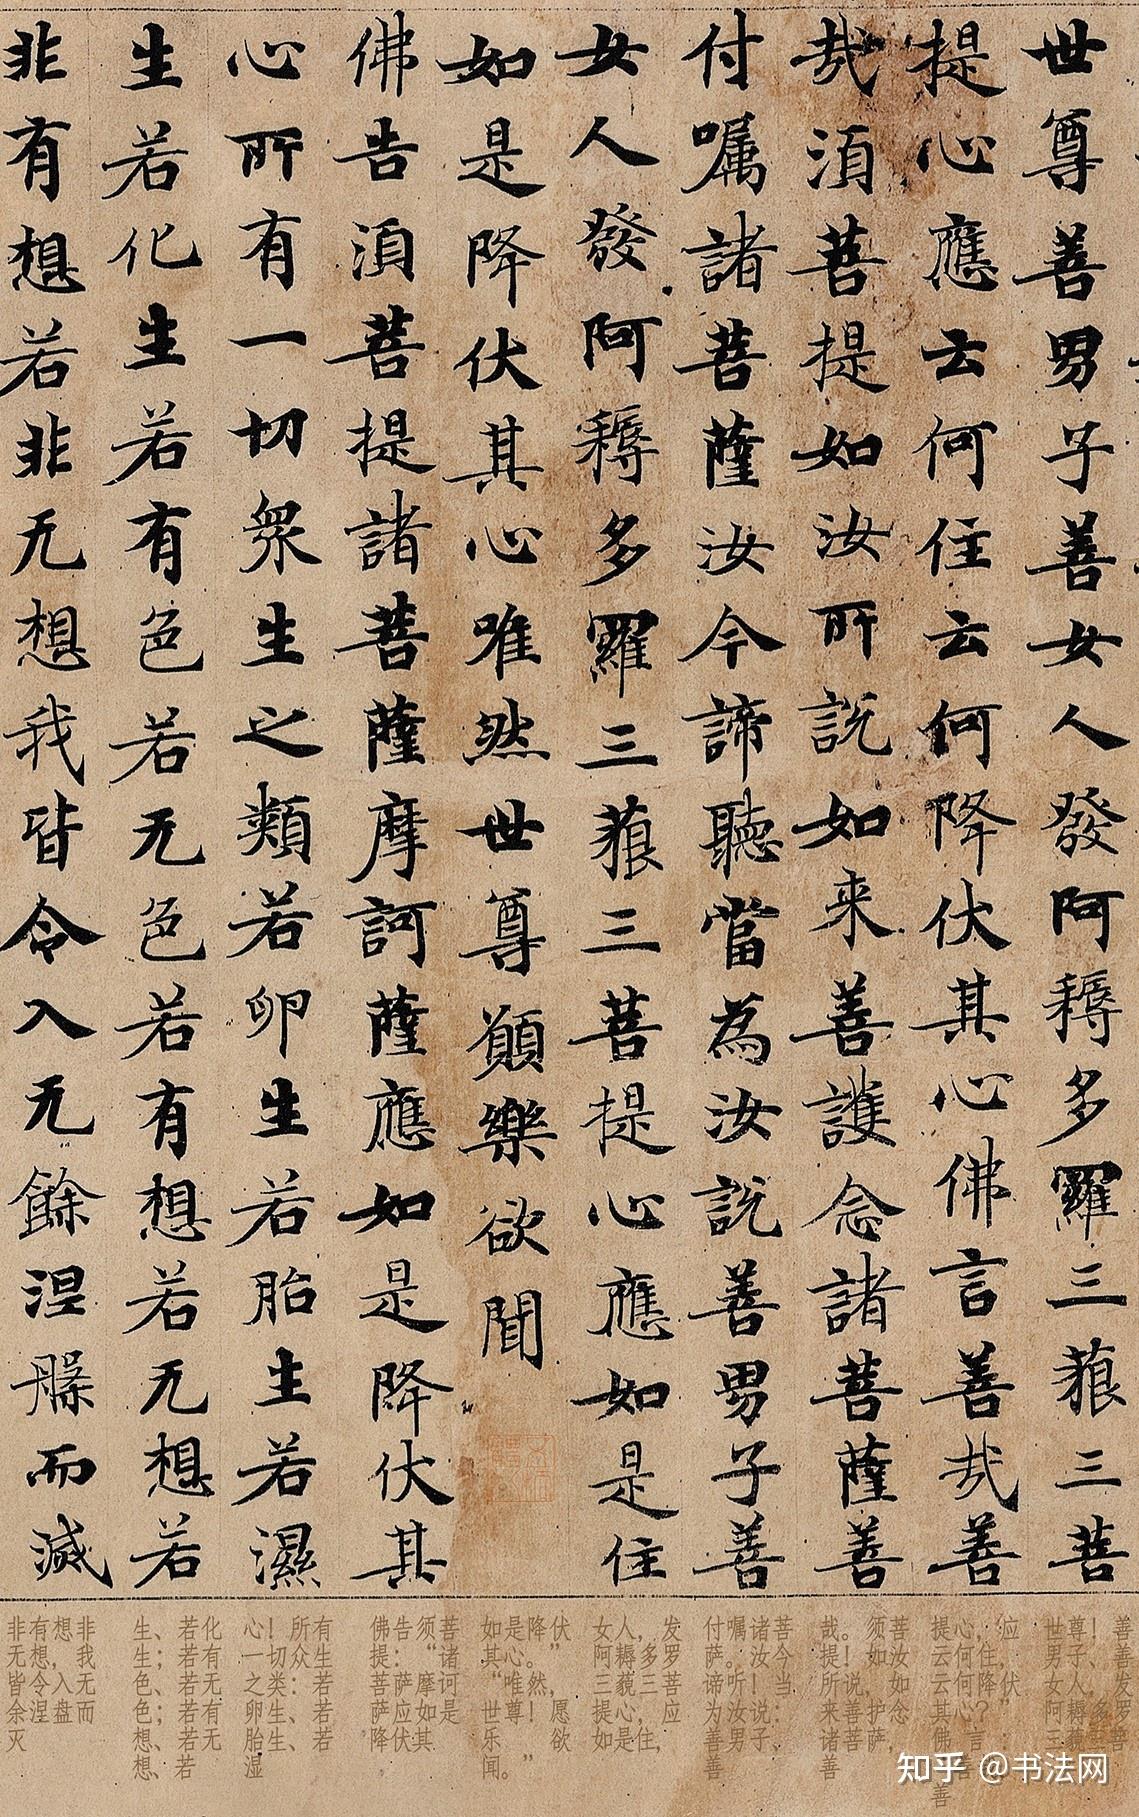 世尊善男子善女人發阿耨多羅三藐三菩
提心應云何住云何降伏其心佛言善哉善
哉須菩提如汝所說如来善護念諸菩薩善
付囑諸菩薩汝今諦聽當為汝說善男子善
女人發阿耨多羅三藐三菩提心應如是住
如是降伏其心唯然世尊願樂欲聞
佛告須菩提諸菩薩摩訶薩應如是降伏其
心所有一切衆生之類若卵生若胎生若濕
生若化生若有色若无色若有想若无想若
非有想若非无想我皆令入无餘涅槃而滅
世尊！善男子、善女人，发阿耨多罗三藐三菩
提心，应云何住，云何降伏其心？”佛言：善
哉。须菩提！如汝所说，如来善护念诸菩萨，善
付嘱诸菩萨。汝今谛听！当为汝说：善男子、善
女人，发阿耨多罗三藐三菩提心，应如是住，
如是降伏其心。”“唯然，世尊！愿乐欲闻。”
佛告须菩提：“诸菩萨摩诃萨应如是降伏其
心！所有一切众生之类：若卵生、若胎生、若湿
生、若化生；若有色、若无色；若有想、若无想、若
非有想非无想，我皆令入无余涅盘而灭
知乎 @书法网